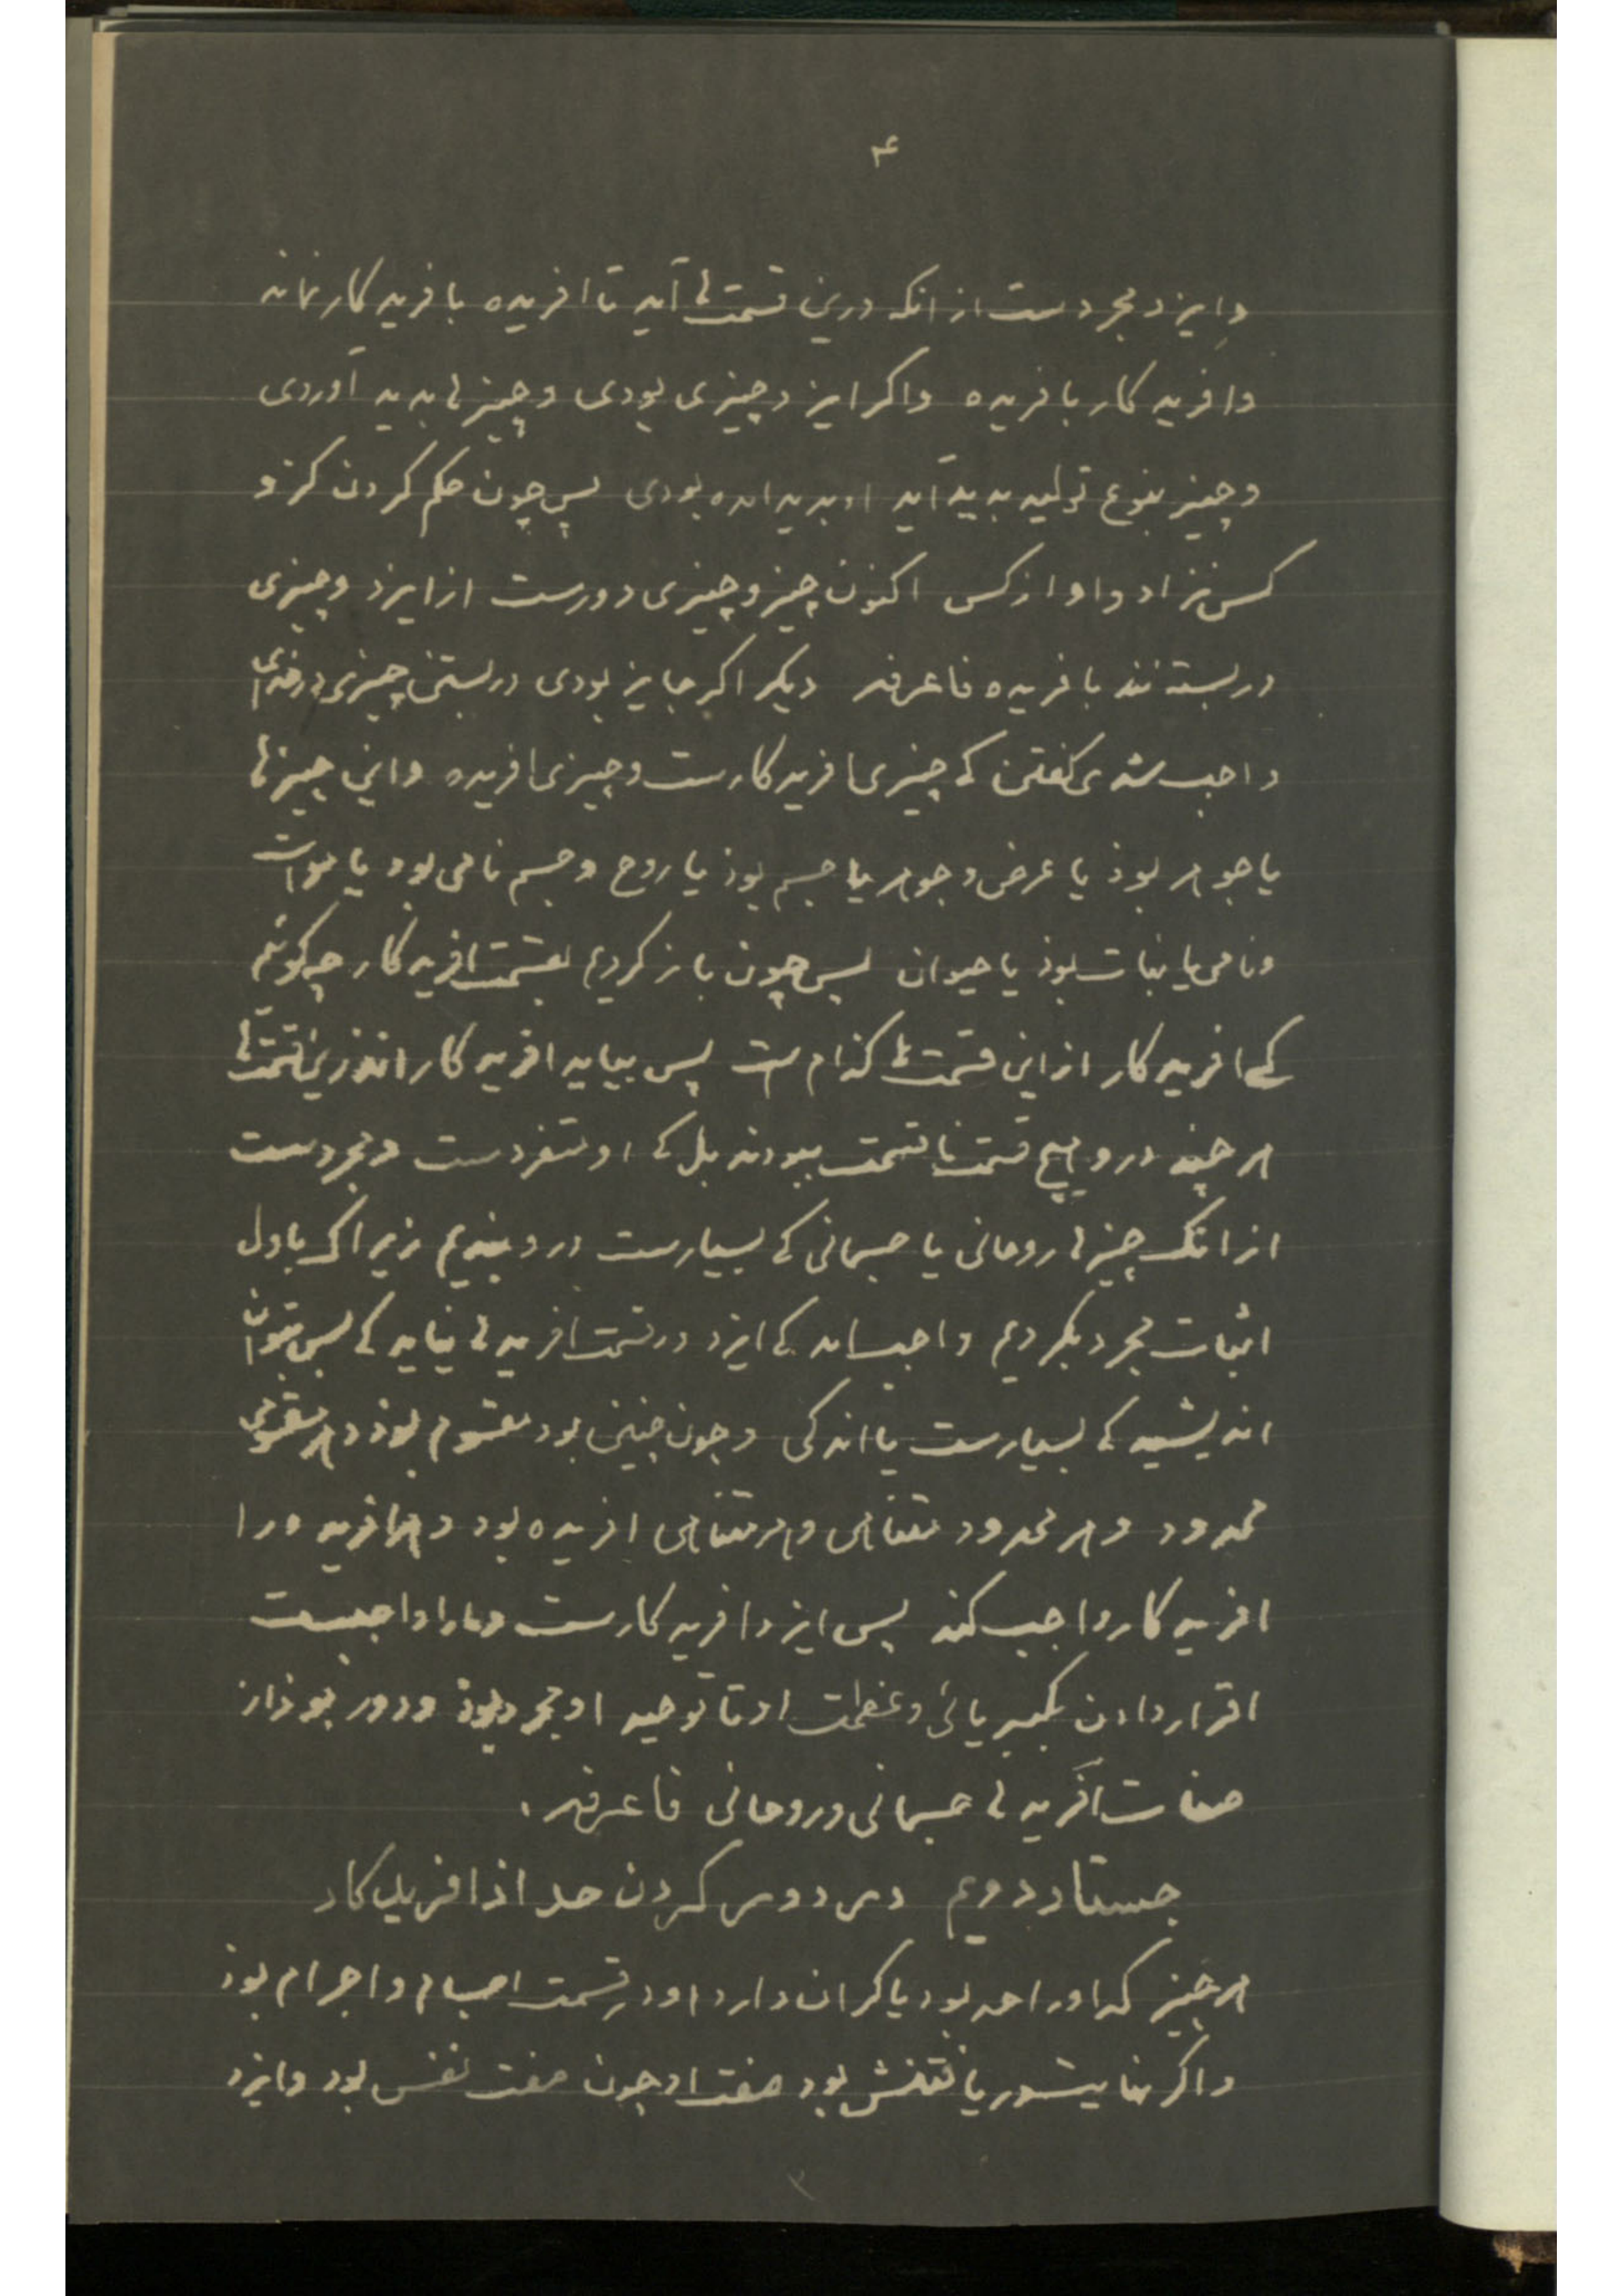 ۴
وایزد مجردست از انکه درین قسمت‌ها آید تا افریده با فریدکار نماند
وافریدکار بافریده واکر ایزد چیزی بودی و چیزها بدید آوردی
و چیز بنوع تولید بدید آید او بدید امده بودی پس چون حکم کردن کزو
کس نزاد واو از کس اکنون چیز و چیزی دورست از ایزد و چیزی
دربسته‌نند بافریده فاعرفه دیکر اکر جایز بودی دربستن چیزی در خدای
واجب شدی کفتن که چیزی افریدکارست و چیزی افریده واین چیزها
یا جوهر بوذ یا عرض و جوهر یا جسم بوذ یا روح و جسم نامی بود یا موات
ونامی یا نبات بوذ یا حیوان پس چون باز کردیم بقسمت افریدکار چه کوئیم
کی افریدکار از این قسمت‌ها کذام است پس بیاید افریدکار اندرین قسمت‌ها
هر چند درو هیچ قسمت نا قسمت ببودند بل کی او متفردست ومجردست
از انک چیزها روحانی یا جسمانی کی بسیارست درو بندیم زیراک باول
اثبات مجرد بکردیم واجب امد کی ایزد در قسمت افریدها نیاید کی پس بتوان
اندیشید کی بسیارست یا اندکی و چون چنین بود مقسوم بوذ و هر مقسومی
محدود و هر محدود متناهی و هر متناهی افریده بود و هر افریده را
افریدکار واجب کند پس ایزد افریدکارست و مارا واجبست
اقرار دادن بکبریائی و عظمت او تا توحید او مجرد بوذ و دور بوذ از
صفات آفریدها جسمانی و روحانی فاعرفه.
جستار دویم در دور کردن حد از افریدکار
هر چیز که اورا حد بود یا کران دارد او در قسمت اجسام و اجرام بوذ
واکر نهایت بود صفت او چون صفت نفس بود وایزد